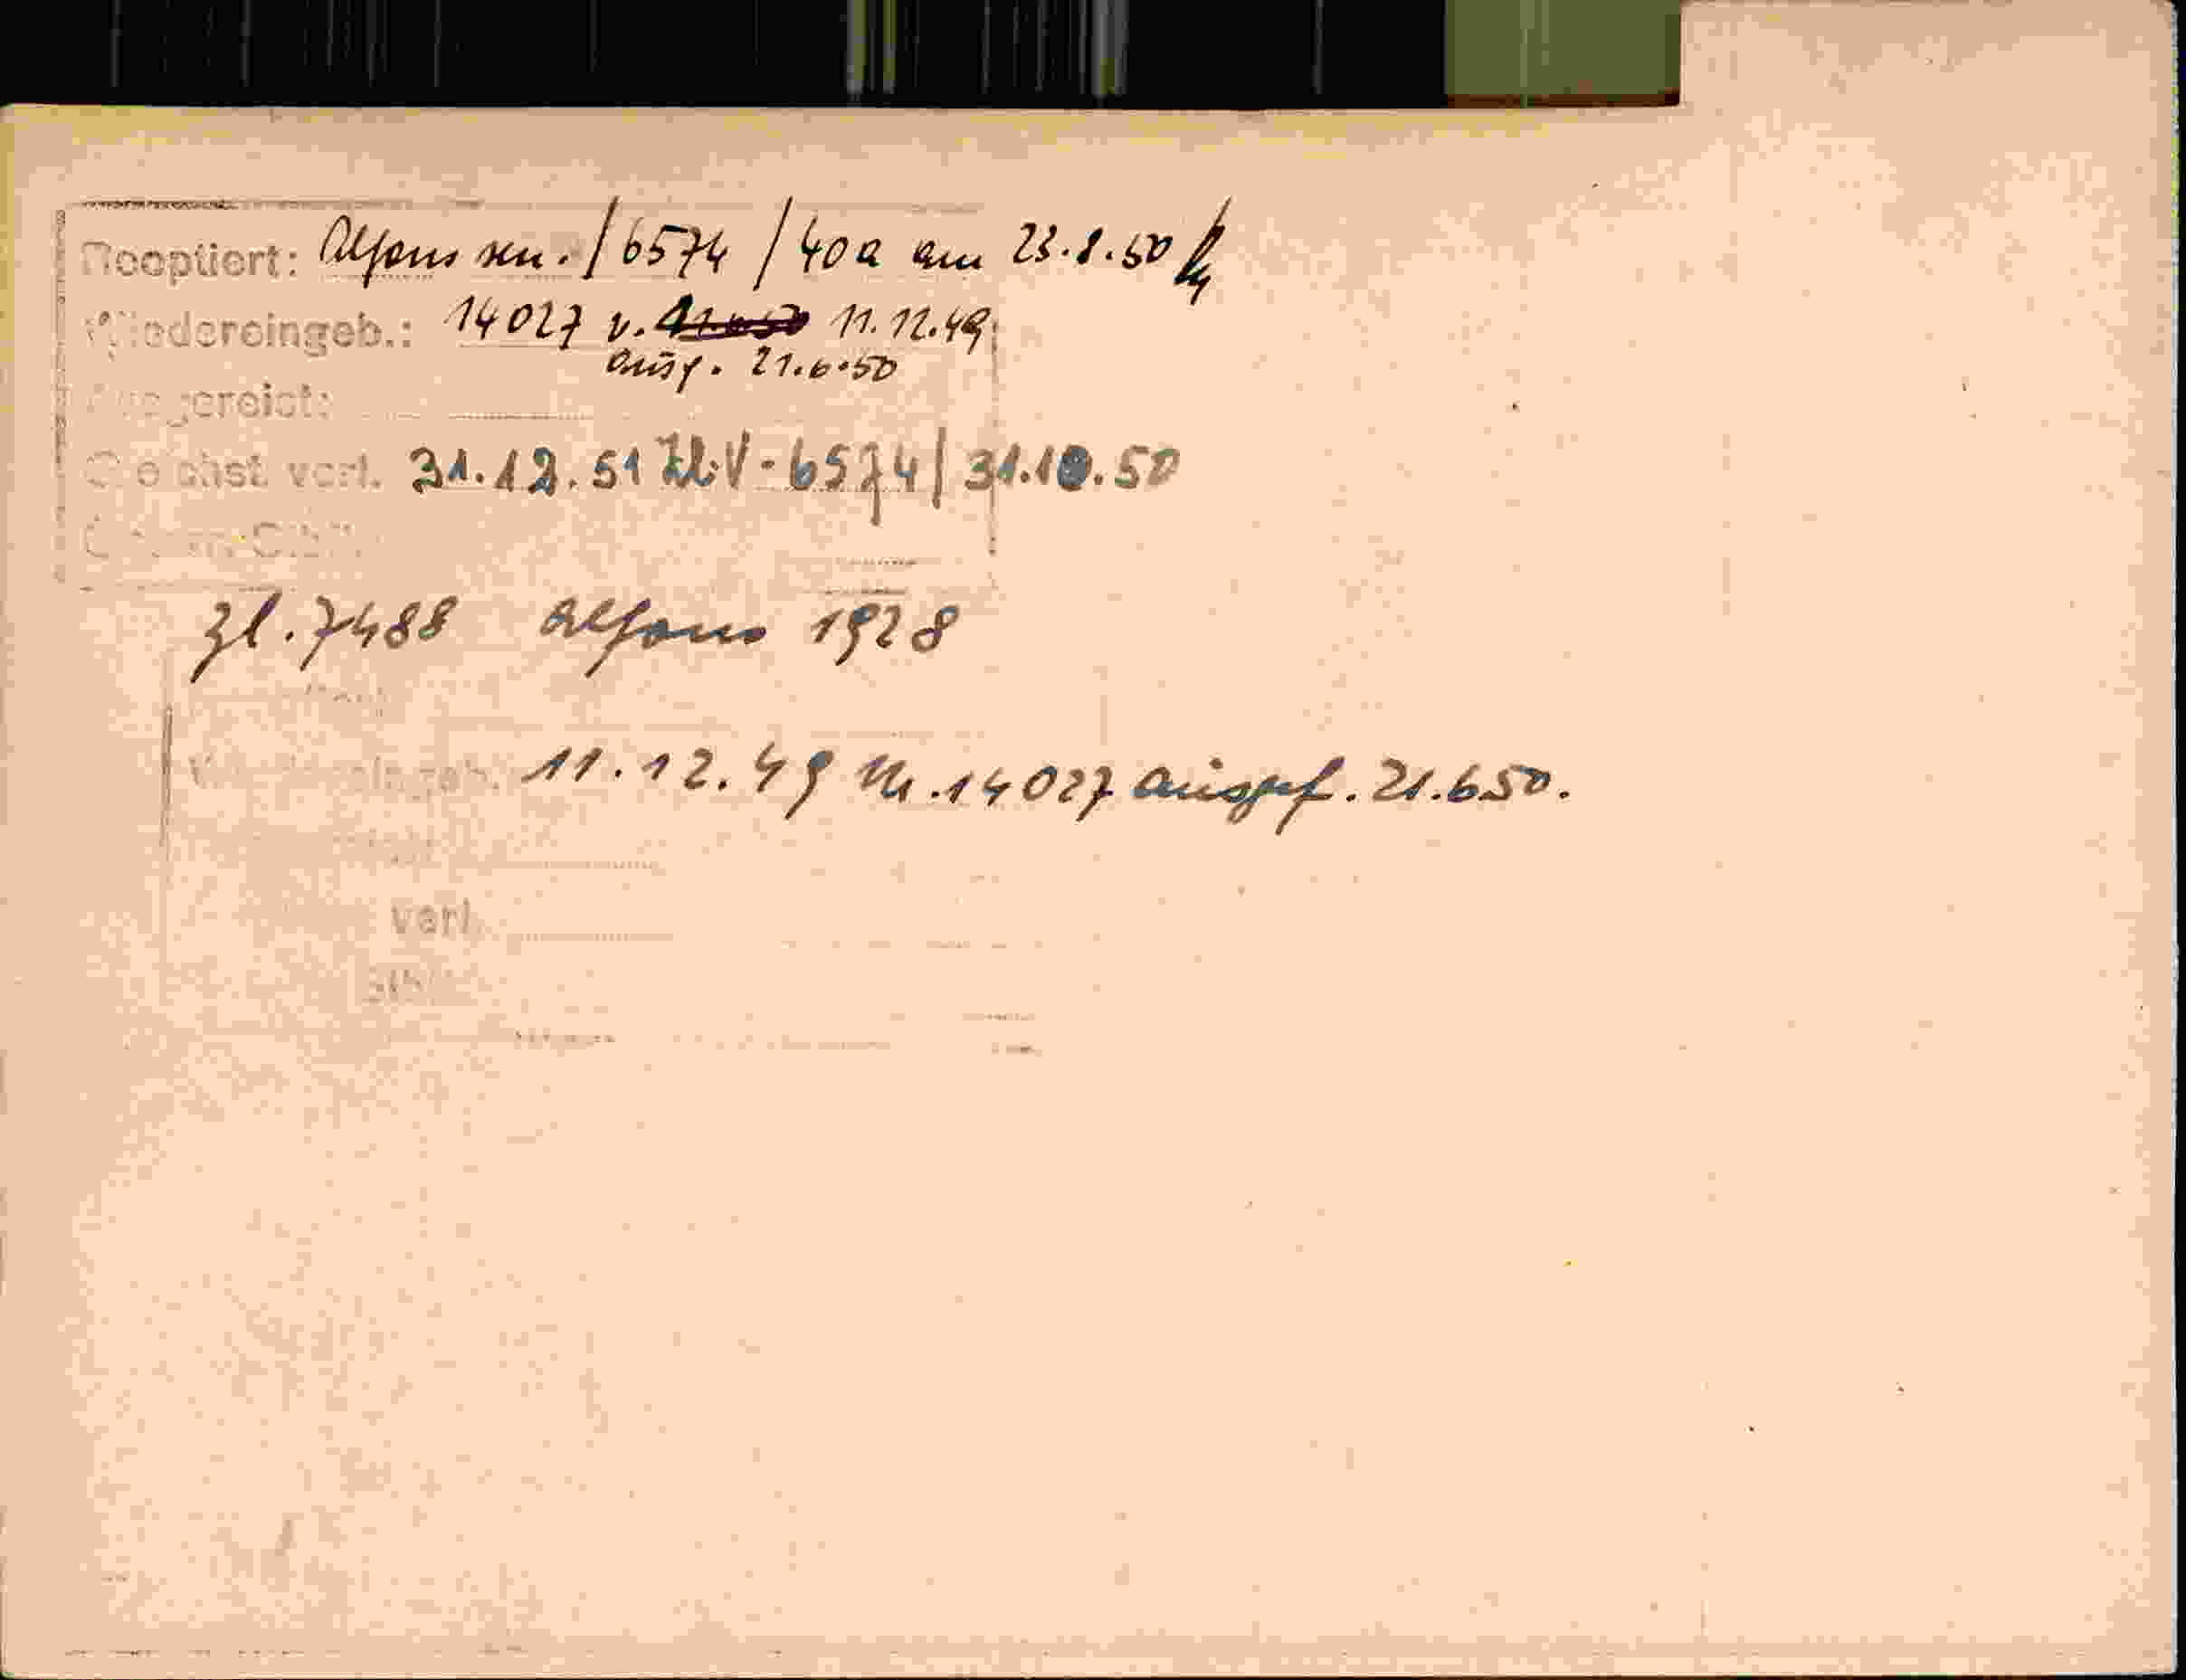 Reoptiert: Alfons sen. / 6574 / 40a am 23.8.50
Wiedereingeb.: 14027 v. 11.12.49
ausg. 21.6.50
Ausgereist:
vorl. 31.12.51 Zl. V - 6574 / 31.10.50
Zl. 7488 Alfons 1928
Wiedereingeb. 11.12.49 Nr. 14027 ausgef. 21.6.50.
verl.